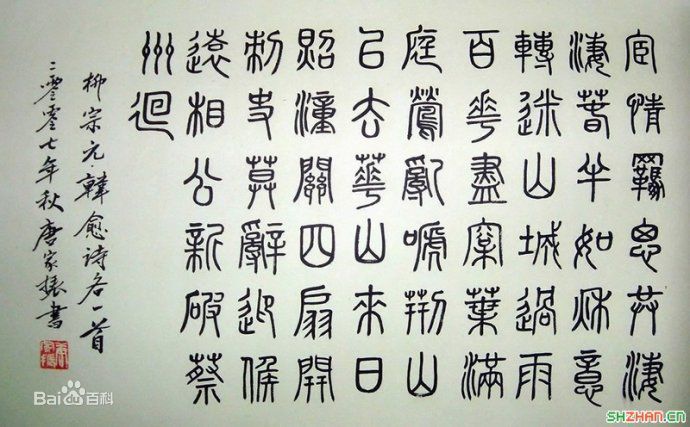 宦情羈思共淒
淒春半如秋意
轉迷山城過雨
百花盡榕葉滿
庭鶯亂嗁荊山
已去華山來日
照潼關四扇開
刺史莫辭迎候
遠相公新破蔡
州迴
柳宗元·韓愈诗各一首
二零零七年秋唐家振書
Bai百科
SHZHAN.CN